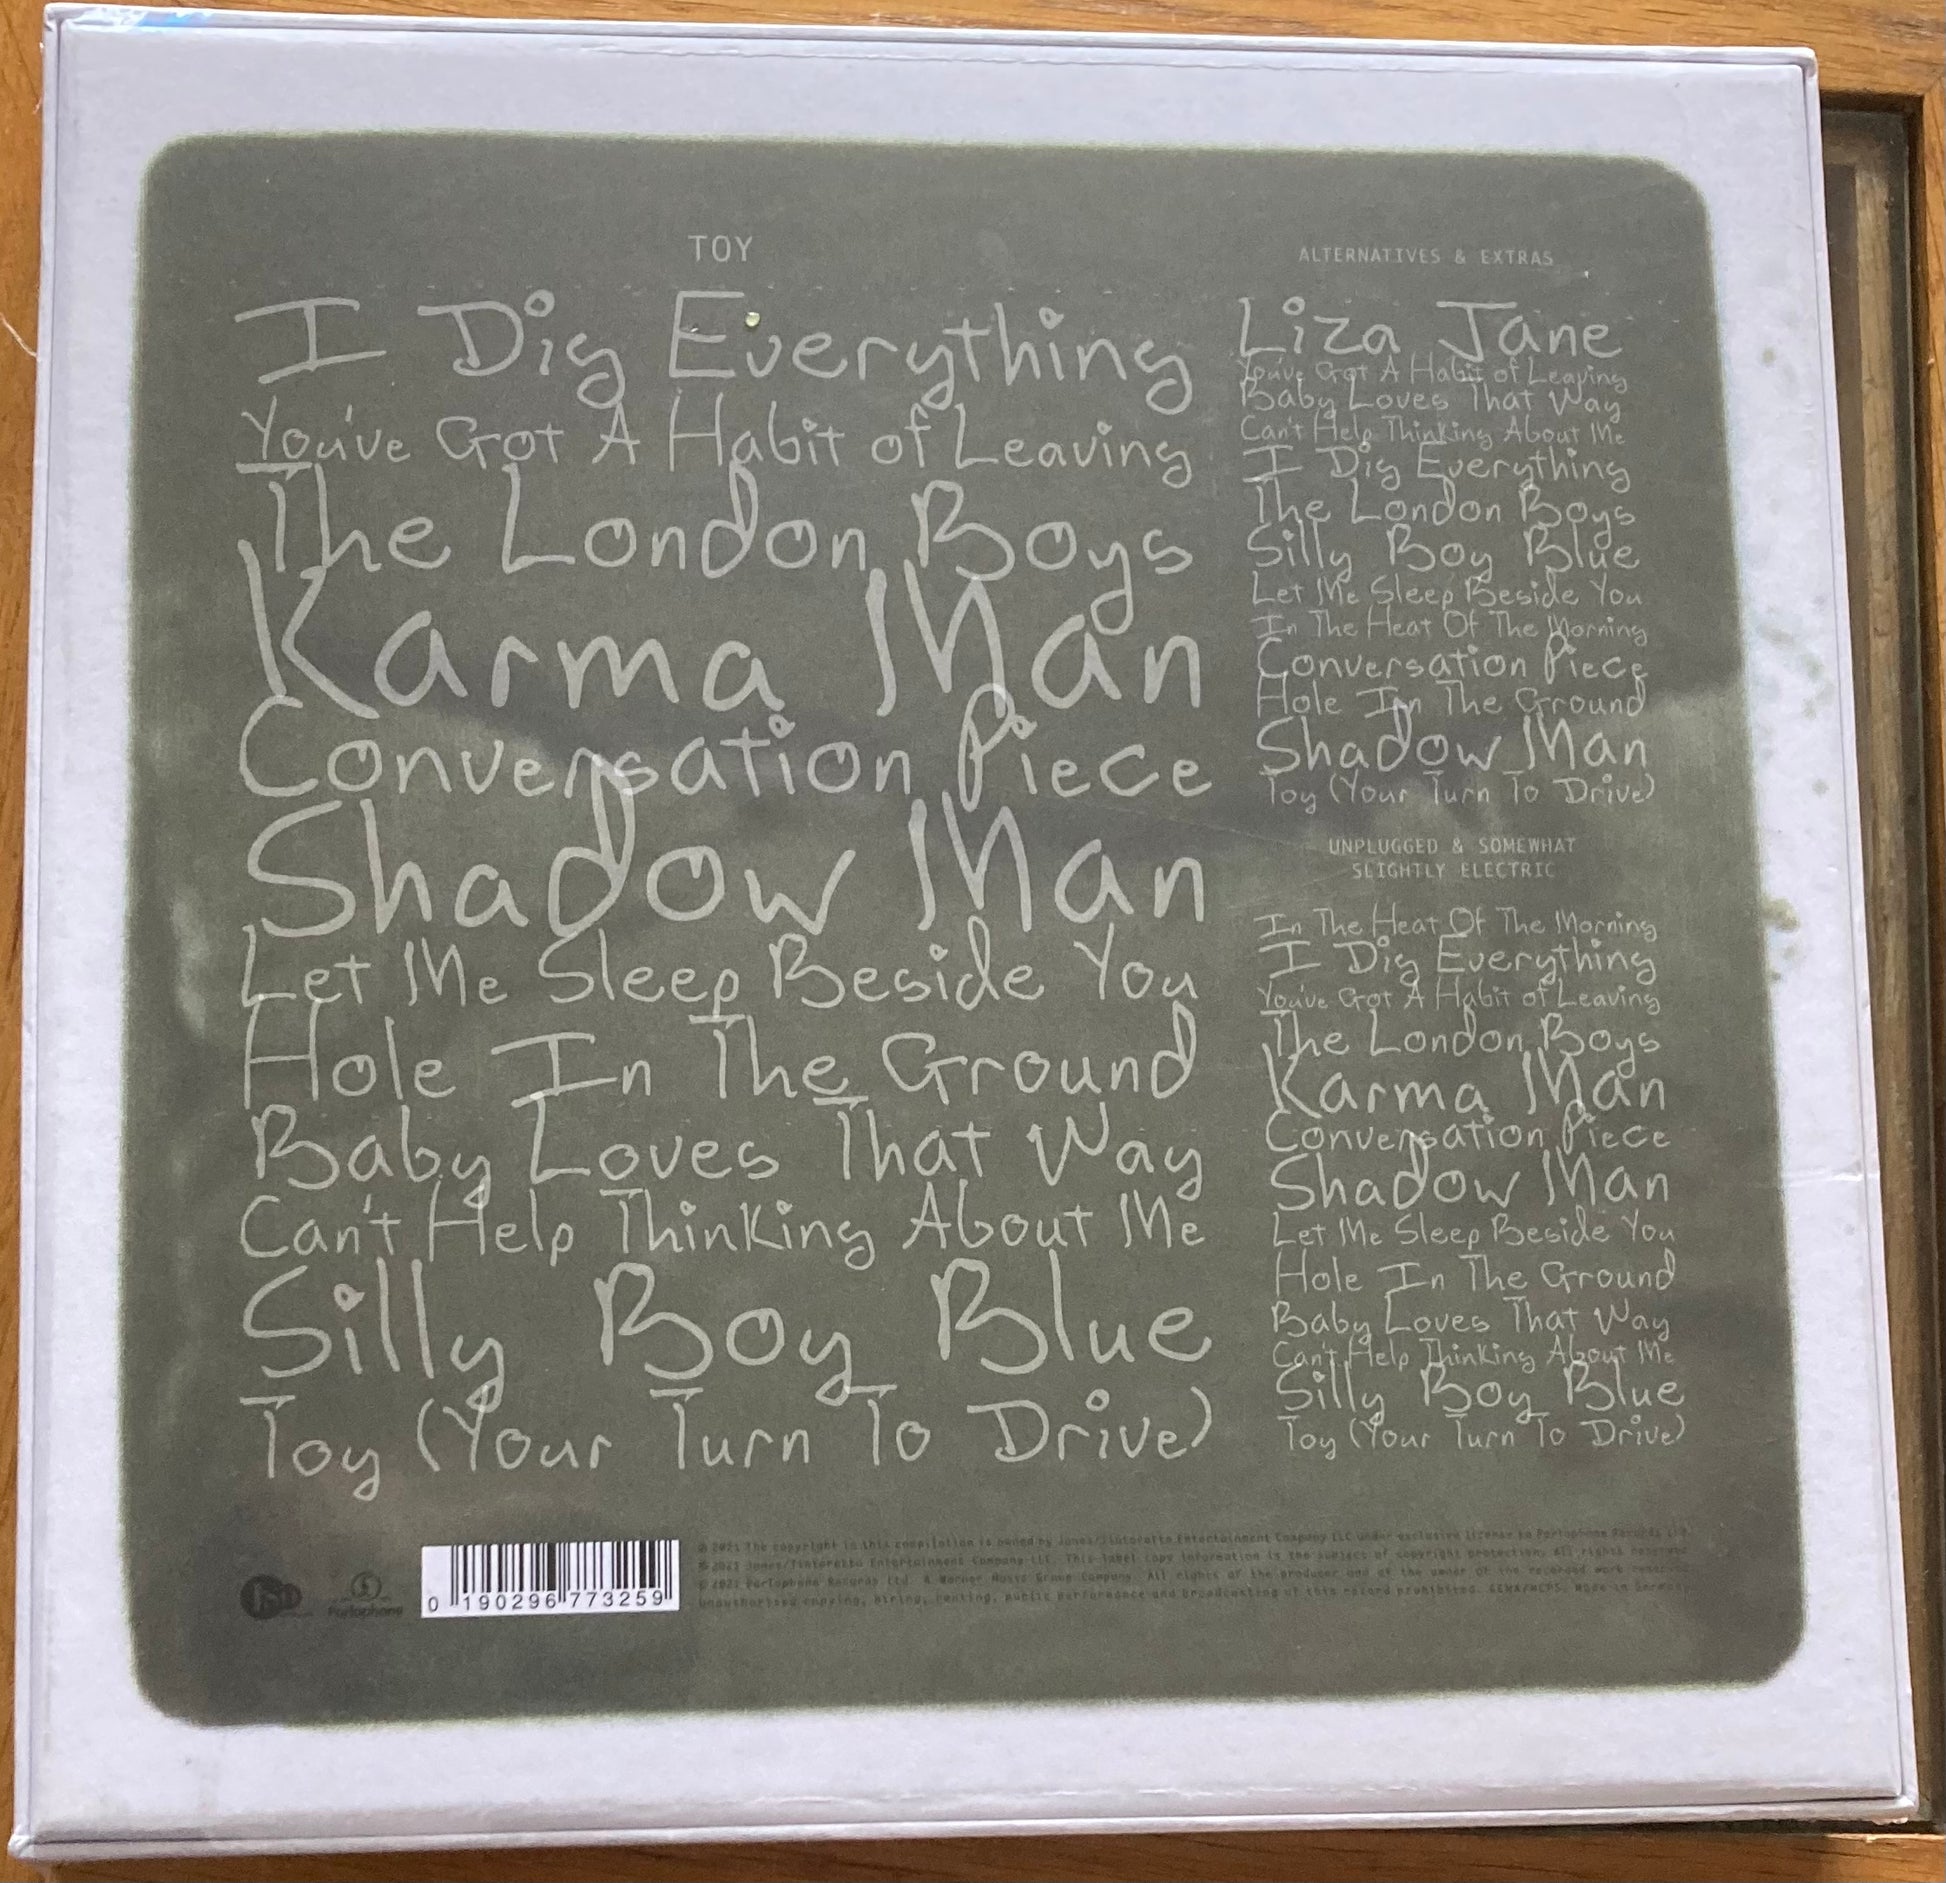 TOY
I Dig Everything
You've Got A Habit of Leaving
The London Boys
Karma Man
Conversation Piece
Shadow Man
Let Me Sleep Beside You
Hole In The Ground
Baby Loves That Way
Can't Help Thinking About Me
Silly Boy Blue
Toy (Your Turn To Drive)
ALTERNATIVES & EXTRAS
Liza Jane
You've Got A Habit of Leaving
Baby Loves That Way
Can't Help Thinking About Me
I Dig Everything
The London Boys
Silly Boy Blue
Let Me Sleep Beside You
In The Heat Of The Morning
Conversation Piece
Hole In The Ground
Shadow Man
Toy (Your Turn To Drive)
UNPLUGGED & SOMEWHAT
SLIGHTLY ELECTRIC
In The Heat Of The Morning
I Dig Everything
You've Got A Habit of Leaving
The London Boys
Karma Man
Conversation Piece
Shadow Man
Let Me Sleep Beside You
Hole In The Ground
Baby Loves That Way
Can't Help Thinking About Me
Silly Boy Blue
Toy (Your Turn To Drive)
Parlophone
0 190296 773259
℗ 2021 The copyright in this compilation is owned by Jones/Tintoretto Entertainment Company LLC under exclusive license to Parlophone Records Ltd.
2021 Jones/Tintoretto Entertainment Company LLC. This label copy information is the subject of copyright protection. All rights reserved
2021 Parlophone Records Ltd. A Warner Music Group Company. All rights of the producer and of the owner of the recorded work reserved
Unauthorised copying, hiring, renting, public performance and broadcasting of this record prohibited. GEMA/MCPS. Made in Germany